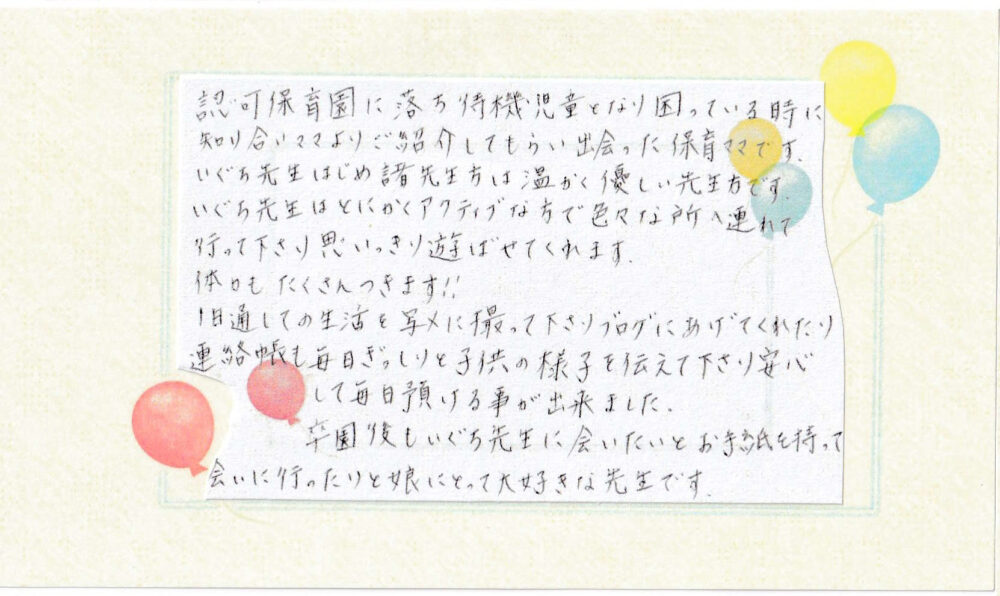 認可保育園に落ち待機児童となり困っている時に
知り合いママよりご紹介してもらい出会った保育ママです。
いぐち先生はじめ諸先生方は温かく優しい先生方です。
いぐち先生はとにかくアクティブな方で色々な所へ連れて
行って下さり思いっきり遊ばせてくれます。
体力もたくさんつきます!!
1日通しての生活を写メに撮って下さりブログにあげてくれたり
連絡帳も毎日ぎっしりと子供の様子を伝えて下さり安心
して毎日預ける事が出来ました。
卒園後もいぐち先生に会いたいとお手紙を持って
会いに行ったりと娘にとって大好きな先生です。